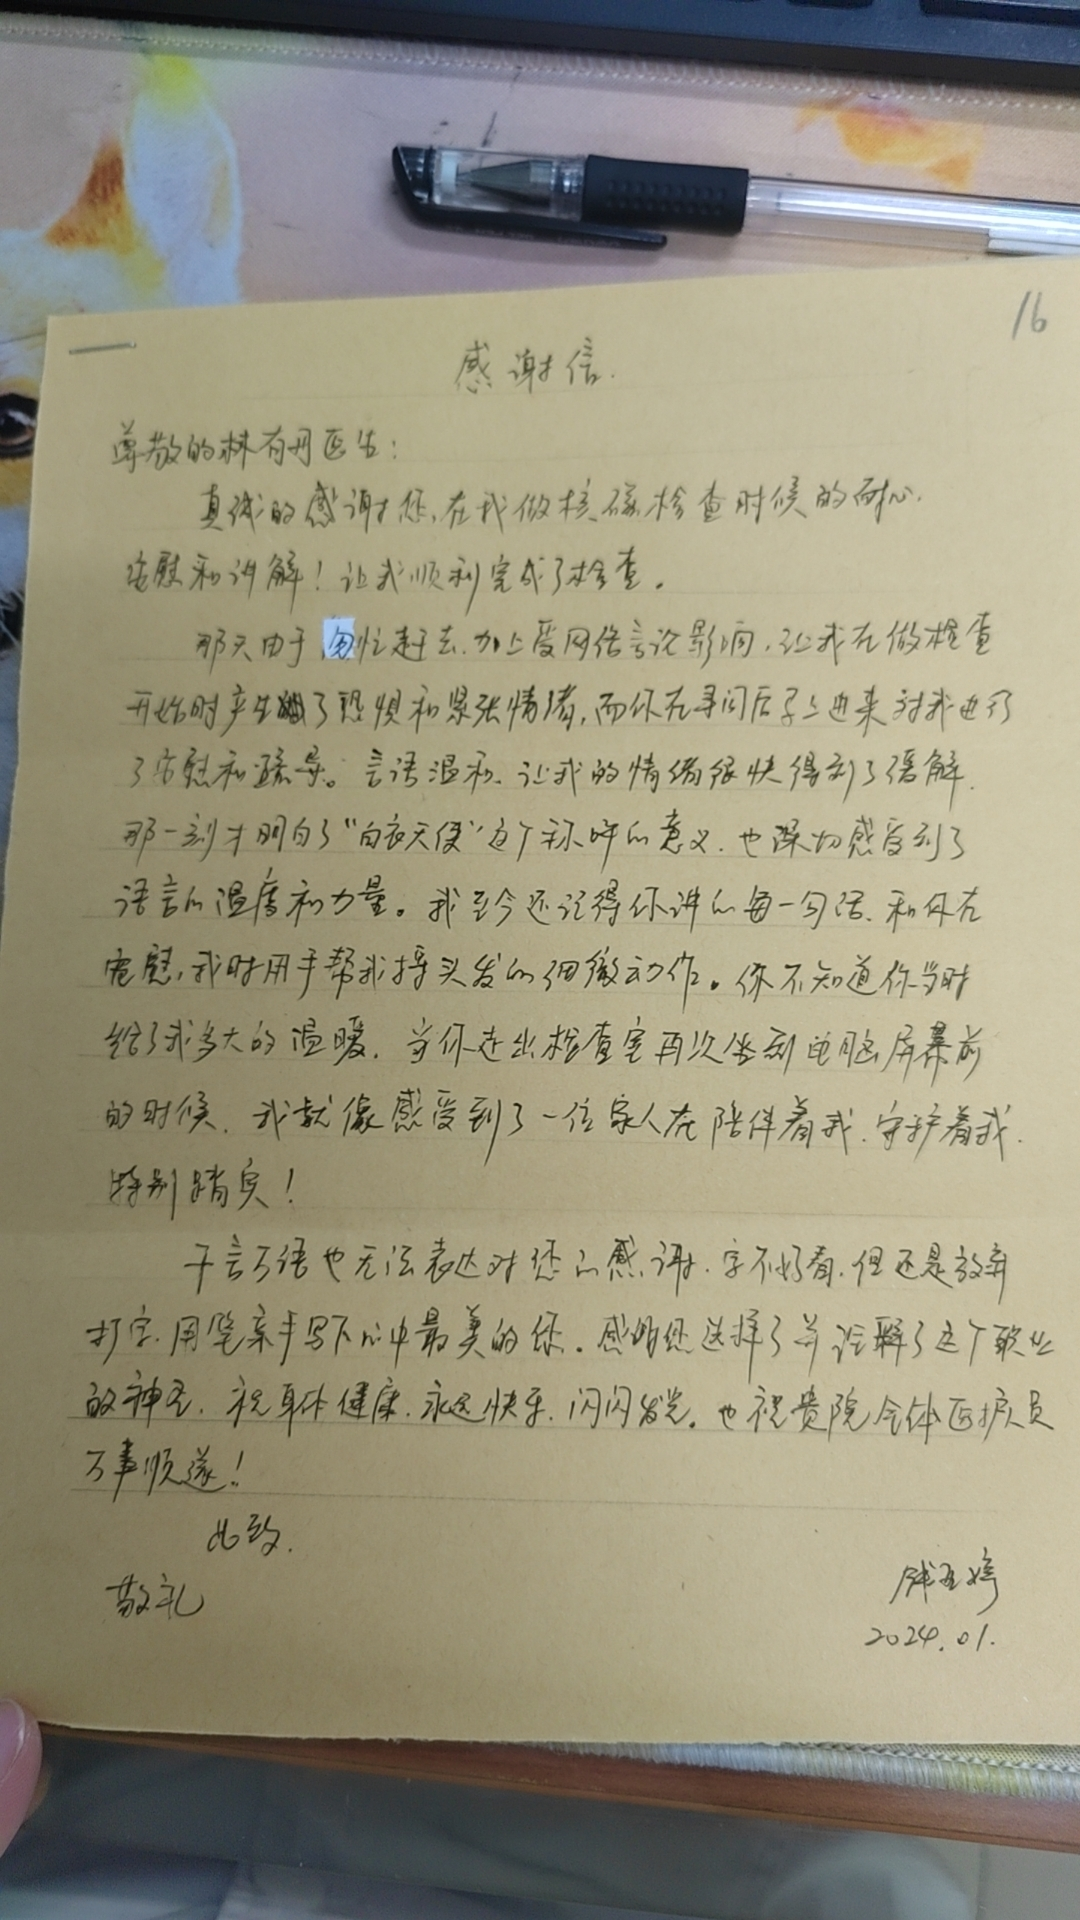 16
感谢信.
尊敬的林有丹医生:
真诚的感谢您,在我做核磁检查时候的耐心
安慰和讲解!让我顺利完成了检查。
那天由于匆忙赶去,加上受网络言论影响,让我在做检查
开始时产生了恐惧和紧张情绪,而你在寻问后马上进来对我进行
了安慰和疏导。言语温和,让我的情绪很快得到了缓解.
那一刻才明白了“白衣天使”这个称呼的意义,也深切感受到了
语言的温度和力量。我至今还记得你讲的每一句话,和你在
安慰,我时用手帮我捋头发的细微动作。你不知道你当时
给了我多大的温暖,当你走出检查室再次坐到电脑屏幕前
的时候,我就像感受到了一位家人在陪伴着我,守护着我,
特别踏实!
千言万语也无法表达对您的感谢,字不好看,但还是放弃
打字,用笔亲手写下心中最美的您。感的您选择了并诠释了这个职业
的神圣,祝身体健康,永远快乐,闪闪发光。也祝贵院全体医护人员
万事顺遂!
此致.
敬礼
2024.01.